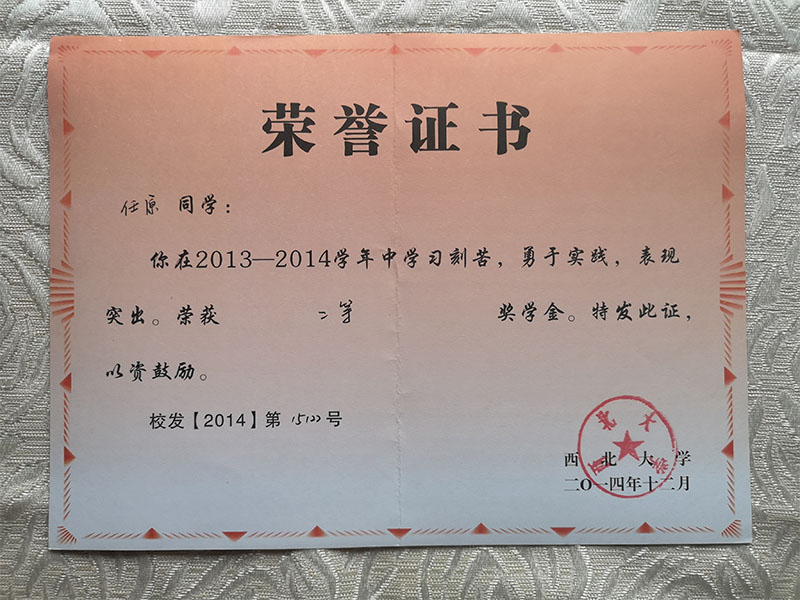 荣誉证书
任原 同学：
你在2013—2014学年中学习刻苦，勇于实践，表现
突出。荣获 二等 奖学金。特发此证，
以资鼓励。
校发【2014】第 号
西北大学
西北大学
二〇一四年十二月